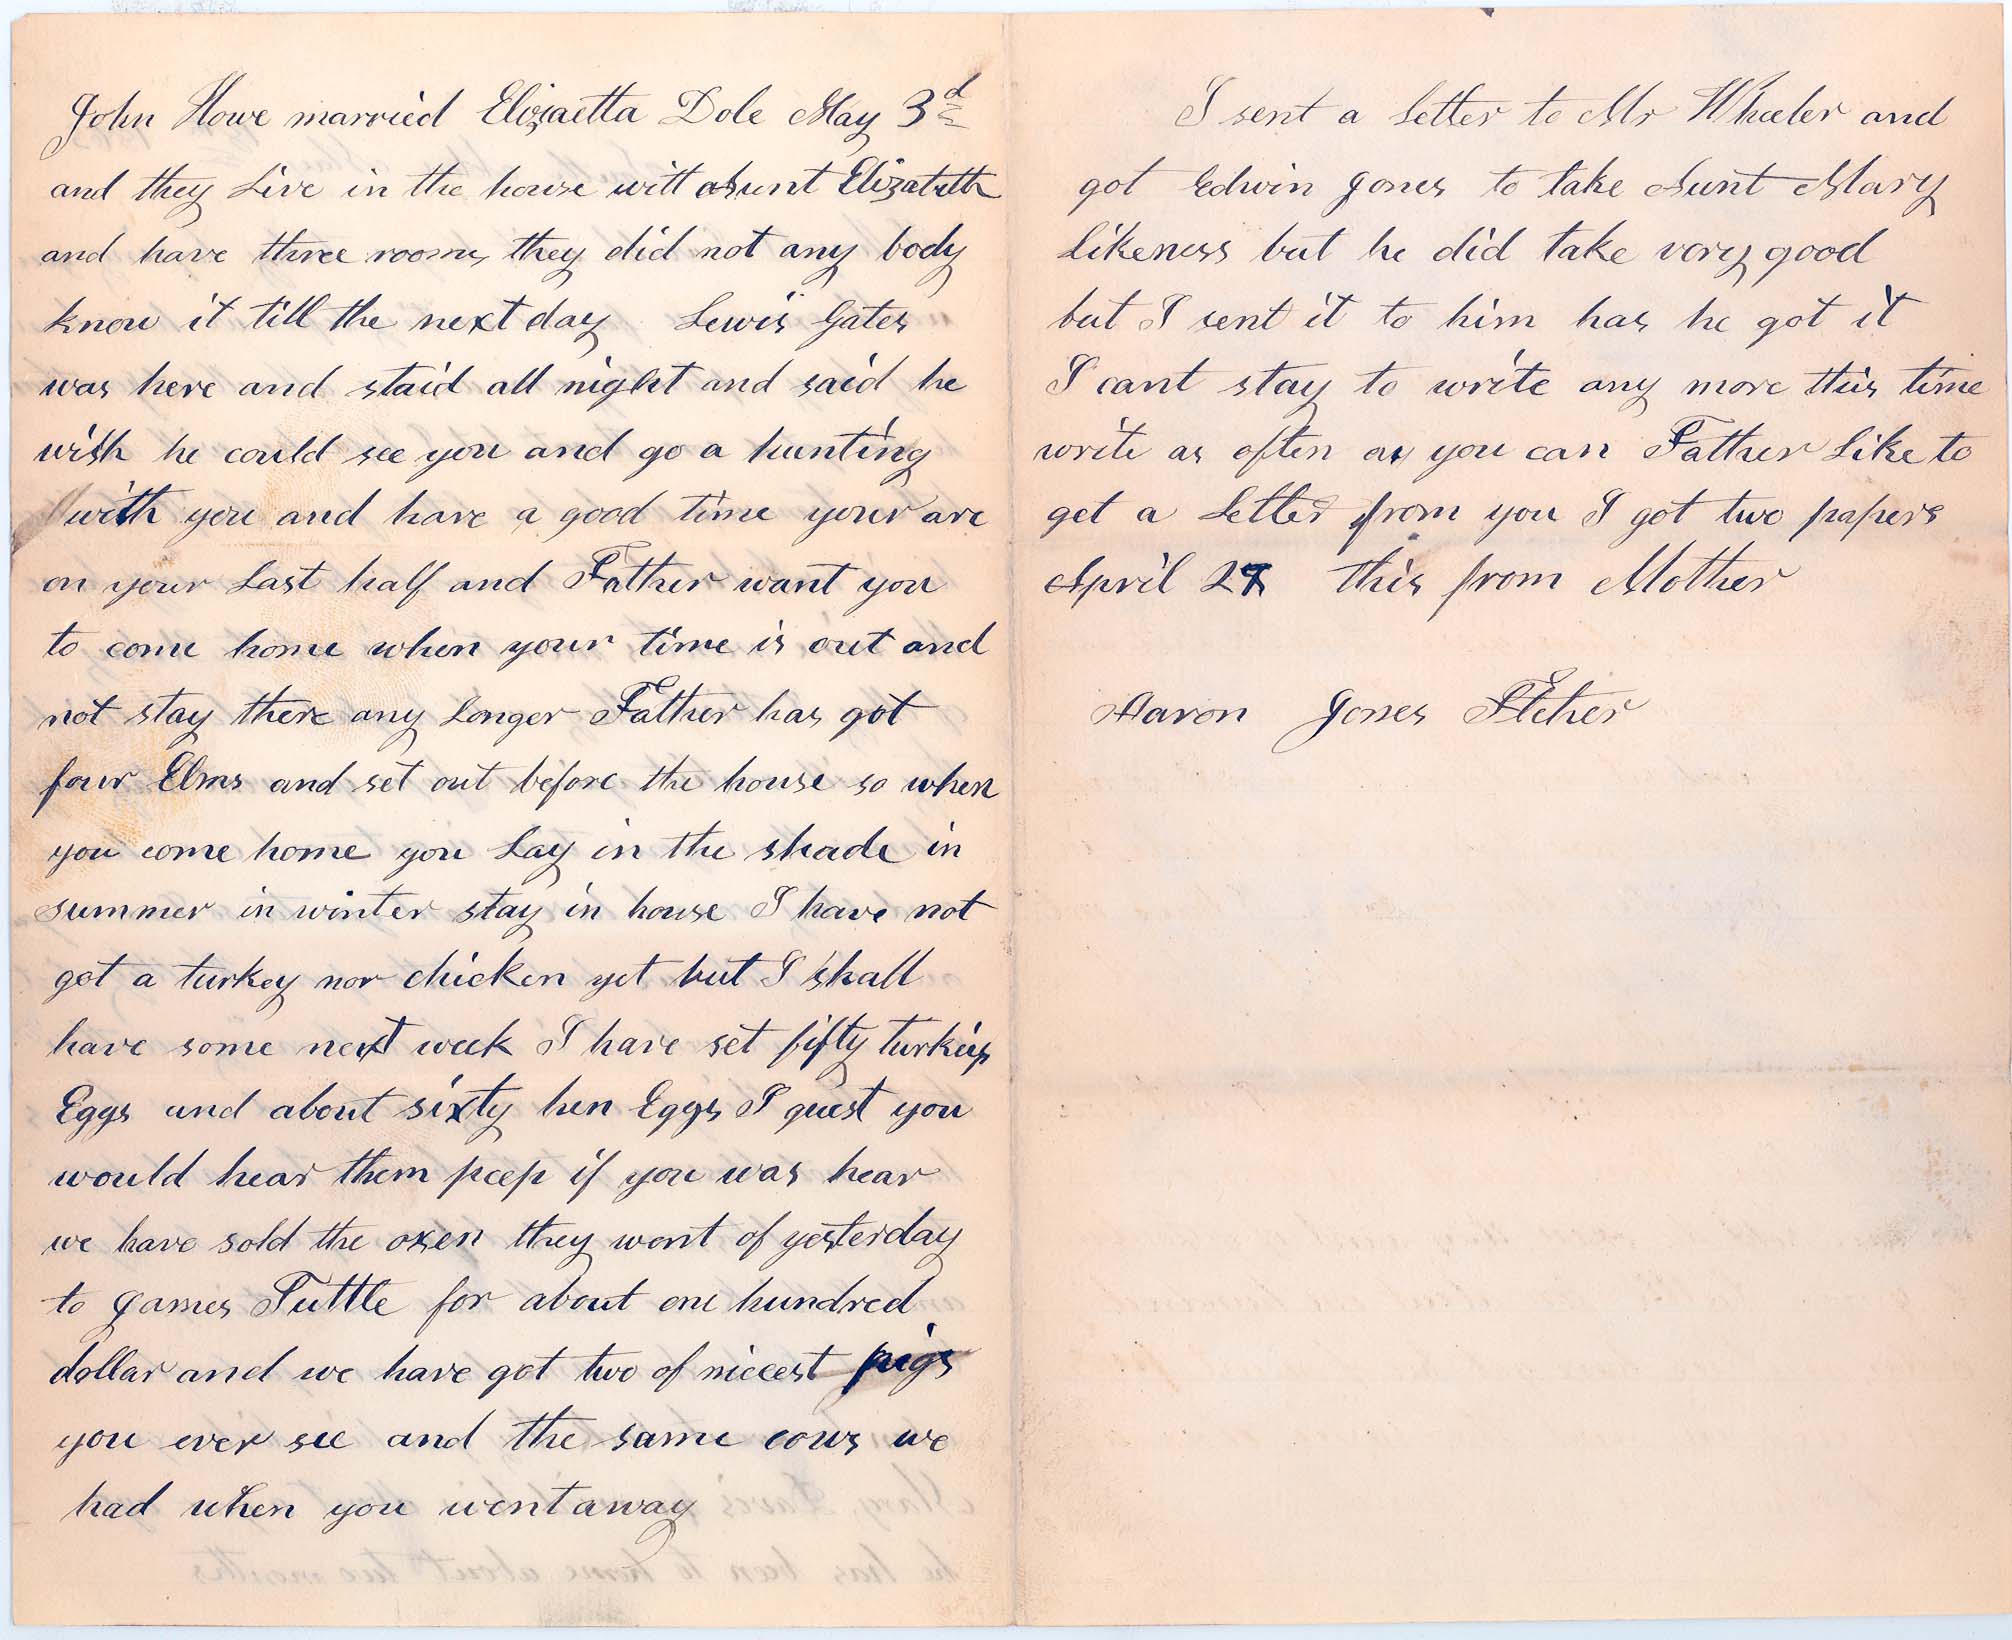 John Howe married Elizaetta Dole May 3d
and they Live in the house witt Aunt Elizabeth
and have three rooms they did not any body
know it till the next day Lewis Gates
was here and staid all night and said he
wish he could see you and go a hunting
with you and have a good time your are
on your Last half and Father want you
to come home when your time is out and
not stay there any Longer Father has got
four Elms and set out before the house so when
you come home you Lay in the shade in
summer in winter stay in house I have not
got a turkey nor chicken yet but I shall
have some next week I have set fifty turkeys
Eggs and about sixty hen Eggs I guest you
would hear them peep if you was hear
we have sold the oxen they went of yesterday
to James Tuttle for about one hundred
dollar and we have got two of niccest pigs
you ever see and the same cows we
had when you went away
I sent a Letter to Mr Wheeler and
got Edwin Jones to take Aunt Mary
Likeness but he did take very good
but I sent it to him has he got it
I cant stay to write any more this time
write as often as you can Father Like to
get a Letter from you I got two papers
April 27 this from Mother
Aaron Jones Fletcher